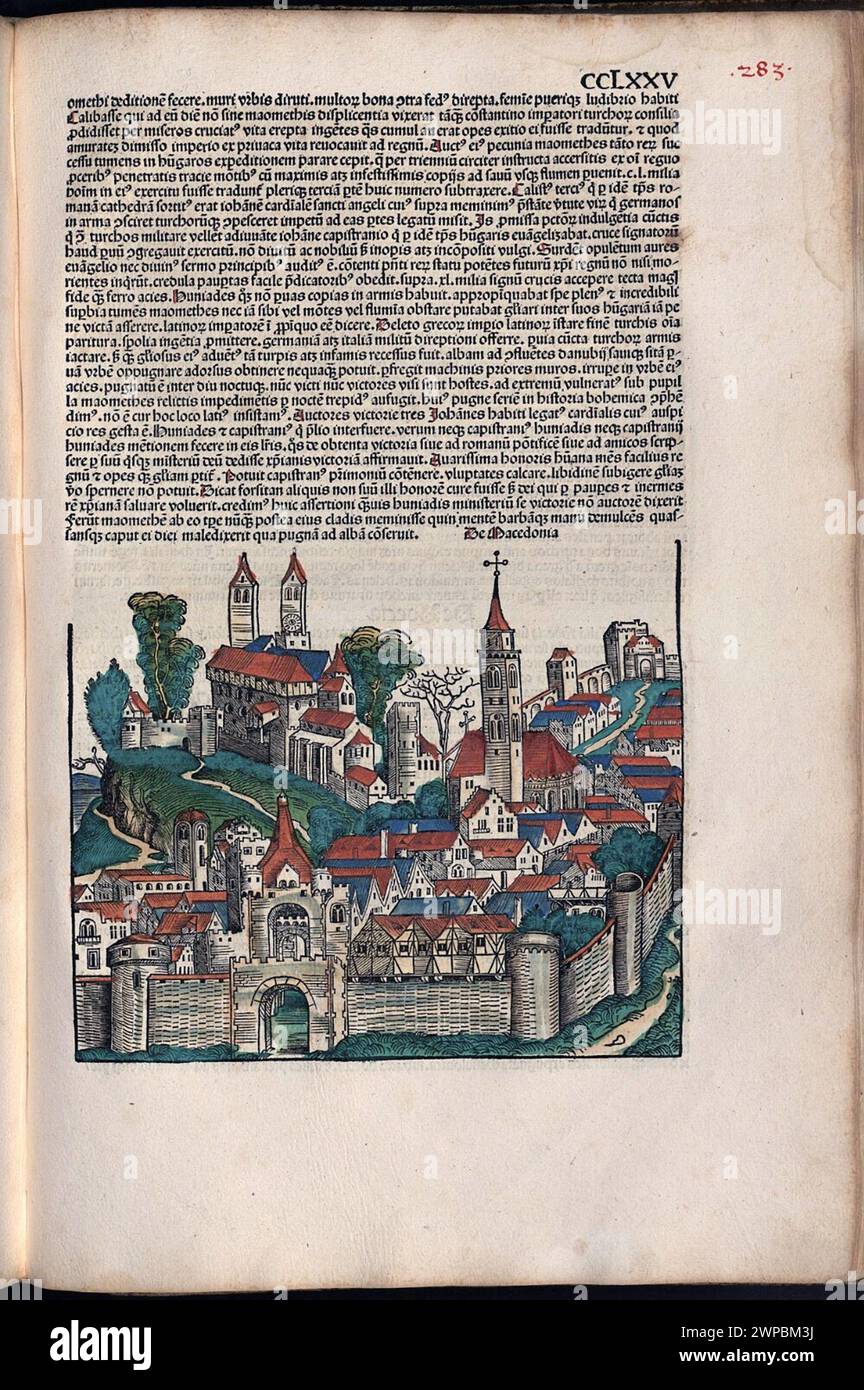 CCLXXV
283.
omethi deditionē fecere. muri vrbis diruti. multorꝝ bona ↄtra fedꝰ direpta. femīe pueriqꝫ ludibrio habiti
Calibasse qui ad eū diē nō sine maomethis displicentia vixerat tāqꝫ cōstantino imꝑatori turchorꝝ consilia
ꝓdidisset per miseros cruciatꝰ vita erepta ingētes qꝫ cumulauerat opes exitio ei fuisse tradūtur. qd
amurates dimisso imperio ex priuaca vita reuocauit ad regnū. Auctꝰ eiꝰ pecunia maomethes tāto rerꝝ suc
cessu tumens in hūgaros expeditionem parare cepit. per triennīū circiter instructa accersitis ex oī regno
ꝓceribꝰ penetratis tracie mōtibꝰ cū maximis atqꝫ īfestissimis copijs ad sauū vsqꝫ flumen ꝑuenit. c.l. milia
hoīm in eiꝰ exercitu fuisse tradunt plerique terciā ꝑtē huic numero subtraxere. Calistꝰ terciꝰ q ꝑ idē tp̄s ro-
manā cathedrā sortitꝰ erat iohānē cardiālē sancti angeli cuiꝰ supra meminimꝰ p̄stāte v̄tute virū q germanos
in arma ↄsciret turchorūqꝫ ↄpesceret impetū ad eas ꝑtes legatū misit. Is ꝓmissa pctōrꝝ indulgētia cūctis
q turchos militare vellēt adiuuāte iohāne capistranio q ꝑ idē tp̄s hūgaris euāgelizabat. cruce signatorū
haud ꝑuū ↄgregauit exercitū. nō diuitū ac nobiliū inopis atqꝫ incōpositi vulgi. Surdēt opulētum aures
euāgelio nec diuinꝰ sermo principibꝰ auditꝰ ē. cōtenti p̄nti rerꝝ statu potētes futurū xp̄i regnū nō nisi mo-
rientes inqrūt. credula pauꝑtas facile p̄dicatoribꝰ obedit. supra .xl. milia signū crucis accepere tecta magꝭ
fide qꝫ ferro acies. Huniades qꝫ nō ꝑuas copias in armis habuit. appropīquabat spe plenꝰ incredibili
suꝑbia tumēs maomethes nec iā sibi vel mōtes vel flumīa obstare putabat gl̄iari inter suos hūgariā ia pe
ne victā asserere. latinorꝝ imꝑatorē ī ꝓpīquo eē dicere. Deleto grecorꝝ imꝑio latinorꝝ īstare finē turchis oīa
paritura. spolia ingētia ꝓmittere. germaniā atqꝫ italiā militū direptioni offerre. ꝑuia cūcta turchorꝝ armis
iactare. gl̄iosus ei aduētꝰ tā turpis atqꝫ infamis recessus fuit. albam ad ↄfluētes danubij sauiqꝫ sitā ꝑ-
uā vrbē oppugnare adorsus obtinere nequaqꝫ potuit. ꝑfregit machinis priores muros. irrupe in vrbē eiꝰ
acies. pugnatū ē inter diu noctuqꝫ. nūc victi nūc victores visi sunt hostes. ad extremū vulneratꝰ sub pupil
la maomethes relictis impedimētis ꝑ noctē trepidꝰ aufugit. huiꝰ pugne seriē in historia bohemica ↄp̄hē
dimꝰ. nō ē cur hoc loco latiꝰ insistam. Auctores victorie tres Johānes habiti legatꝰ cardīalis cuiꝰ auspi
cio res gesta ē. Huniades capistranꝰ q p̄lio interfuere. verum neqꝫ capistranꝰ huniadis neqꝫ capistranij
huniades mētionem fecere in eis lr̄is. qꝫs de obtenta victoria siue ad romanū pōtificē siue ad amicos scrip-
sere ꝑ suū qsqꝫ misteriū deū dedisse xp̄ianis victoriā affirmauit. Auarissima honoris hūana mēs facilius re
gnū opes qꝫ gl̄iam ꝑtit. Potuit capistranꝰ p̄rimoniū cōtēnere. voluptates calcare. libidinē subigere gl̄iaꝫ
v̄o spernere nō potuit. Dicat forsitan aliquis non suū illi honorē cure fuisse dei qui ꝑ pauꝑes inermes
rē xp̄ianā saluare voluerit. credimꝰ huic assertioni qꝫuis huniadis ministeriū se victorie nō auctorē dixerit
Ferūt maomethē ab eo tp̄e nūqꝫ postea eius cladis meminisse quin mentē barbāqꝫ manu demulcēs quas-
sansqꝫ caput ei diei maledixerit qua pugnā ad albā cōseruit. De Macedonia
alamy
Image ID: 2WPBM3J
www.alamy.com